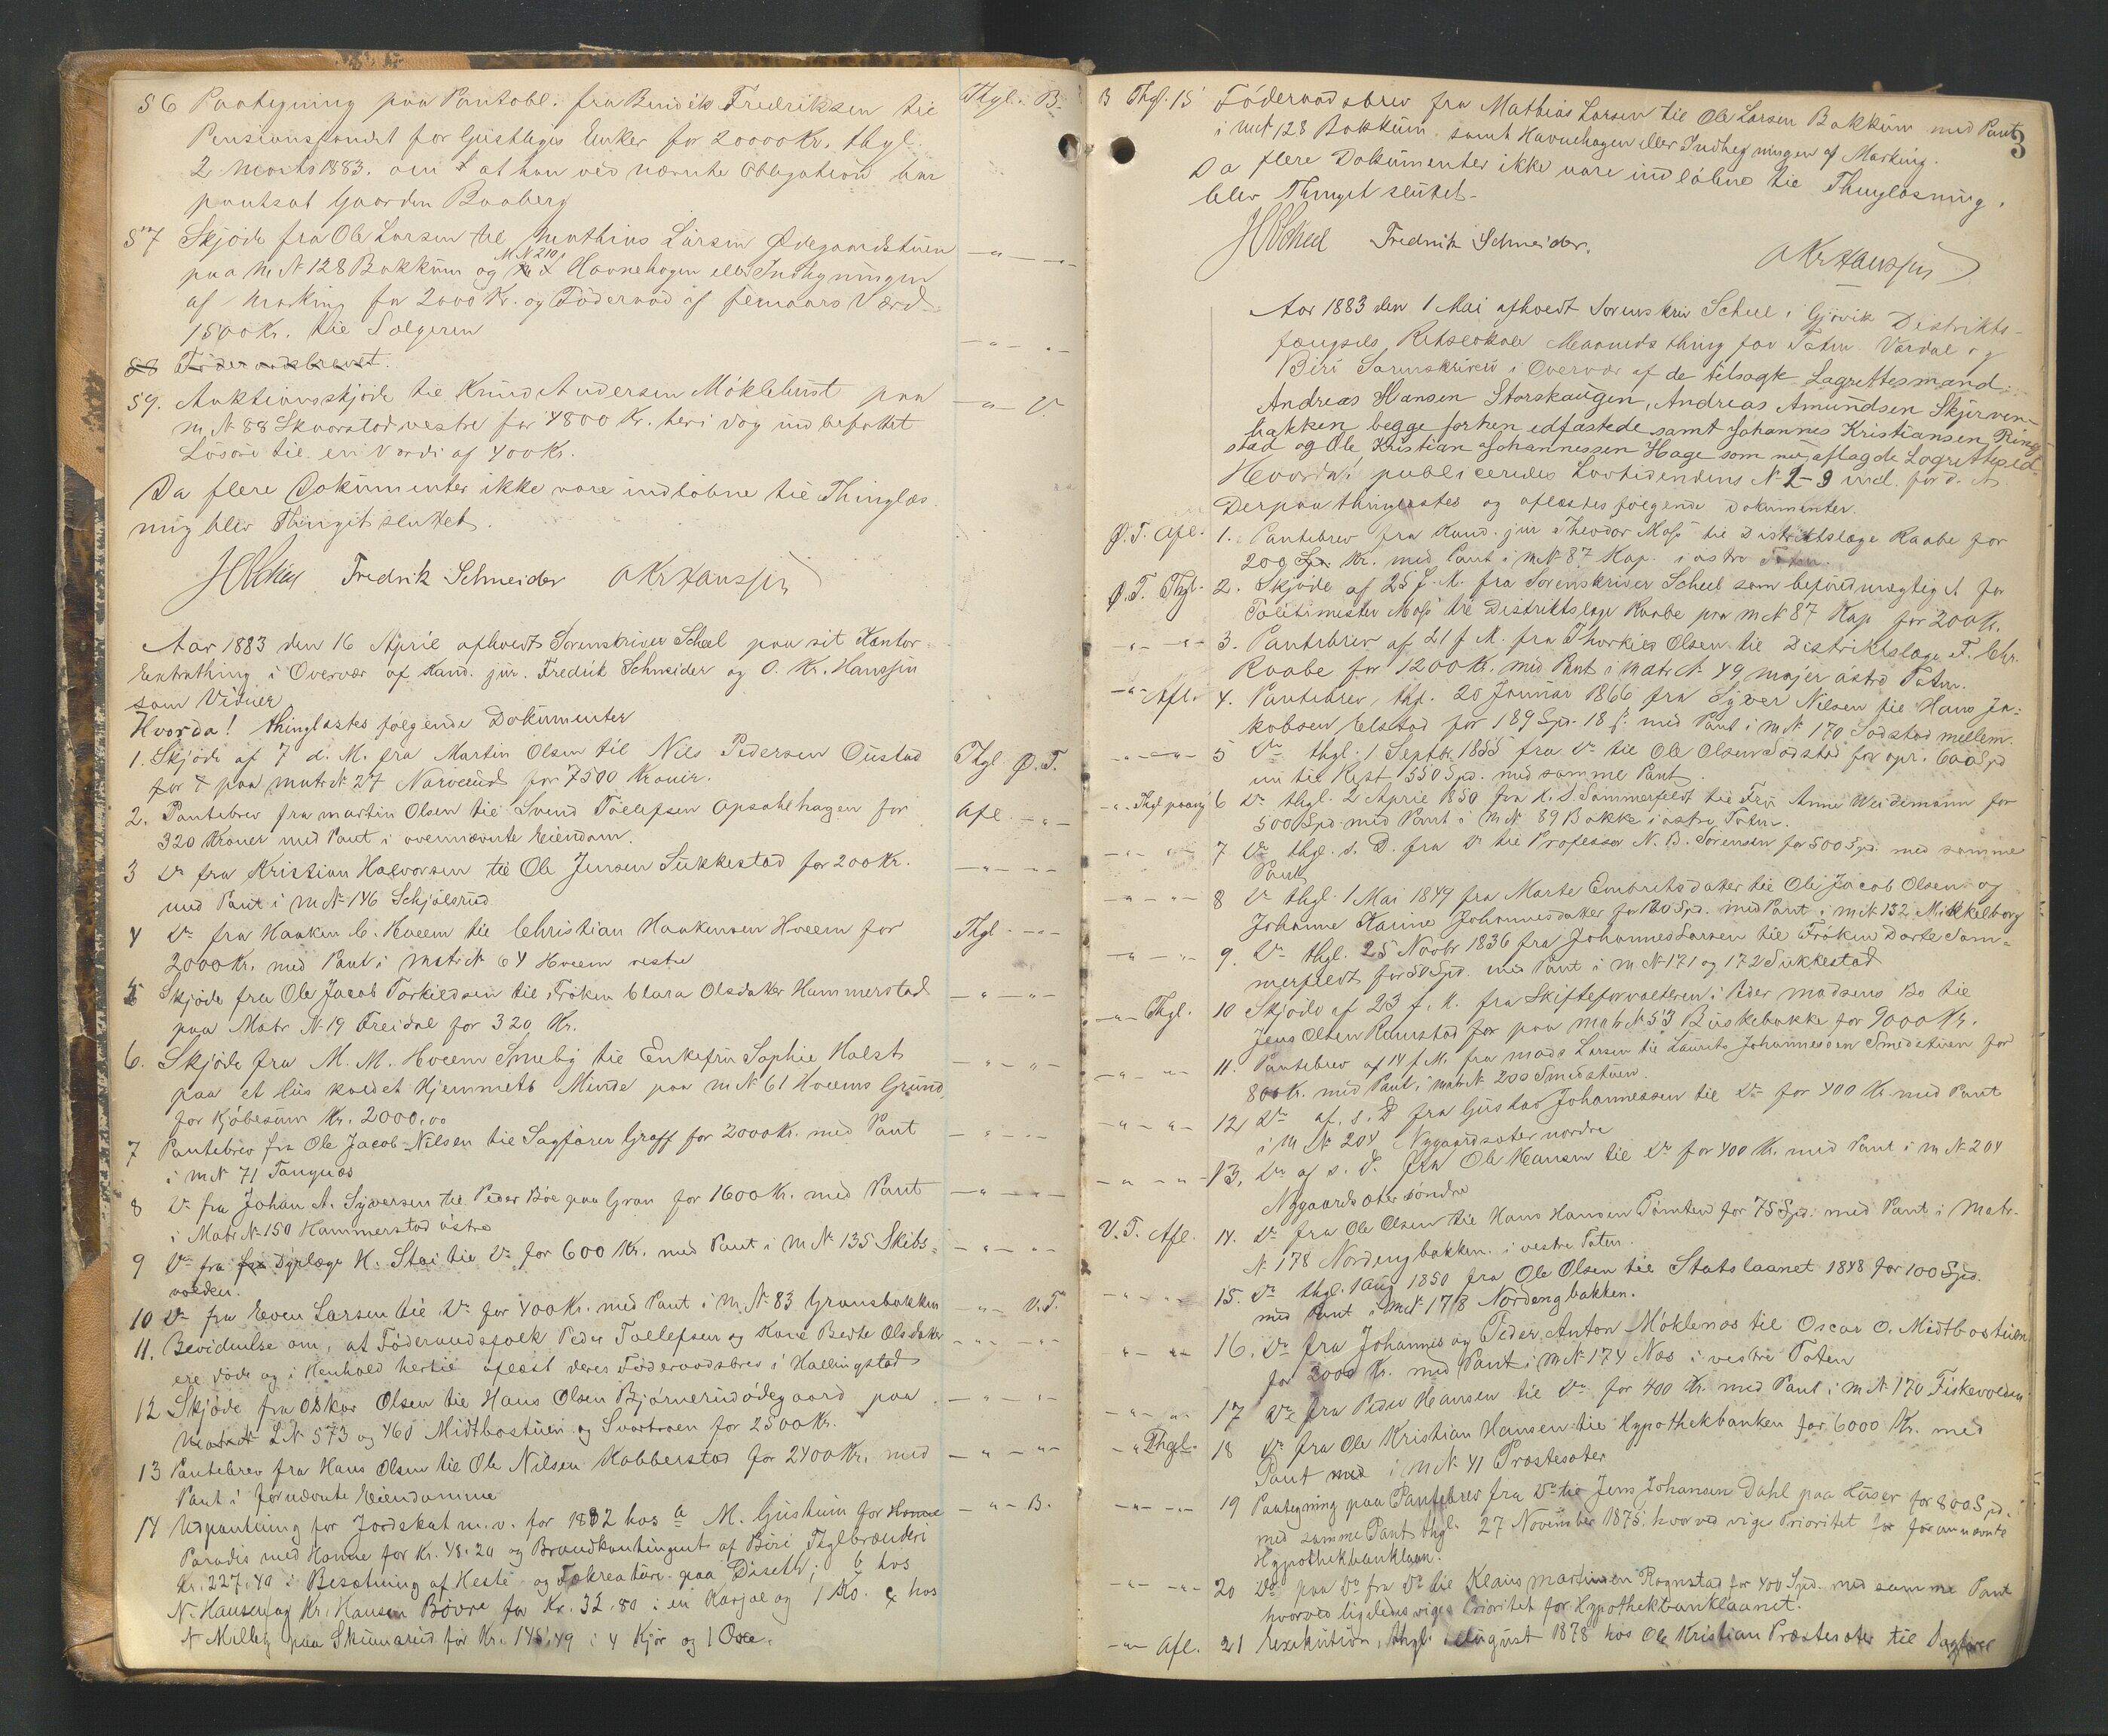 56 Paategning paa Pantobl. fra Bendik Fredriksen til Thgl. B.
Pensionsfondet for Geistliges Enker for 20000 Kr. thgl.
2 Marts 1883. om at han ved nævnte Obligation har
pantsat Gaarden Braaberg
57 Skjøde fra Ole Larsen til Mathias Larsen Ødegaardstuen
paa M N 128 Bakkum og M N 210 Havnehagen eller Indhegningen
af Marking for 2000 Kr. og Föderaad af femaars Værd
1500 Kr. til Sælgeren
58 Föderaadsbrevet.
59. Auktionsskjöde til Knud Andersen Möklehust paa V.
M. N 88 Skvorstad vestre for 4800 Kr. heri dog indbefattet
Lösöre til en Værdi af 400 Kr.
Da flere Dokumenter ikke vare indlöbne til Thinglæs
ning blev Thinget sluttet.
HScheel Fredrik Schneider O Kr Hanssen
Aar 1883 den 16 April afholdt Sorenskriver Scheel paa sit Kontor
Extrathing i Overvær af Kand. jur. Fredrik Schneider og O. Kr. Hanssen
som Vidner
Hvorda! thinglæstes følgende Dokumenter
1. Skjøde af 7 d. M. fra Martin Olsen til Nils Pedersen Oustad Thgl Ø.T.
for paa Matr N 27 Narverud for 7500 Kroner.
2. Pantebrev fra Martin Olsen til Svend Tollefsen Opsahlhagen for Afl.
320 Kroner med Pant i ovennævnte Eiendom.
3 Do fra Kristian Halvorsen til Ole Jensen Sukkestad for 200 Kr.
med Pant i M N 146 Schjölsrud
4 Do fra Haaken C. Hveem til Christian Haakensen Hveem for Thgl
2000 Kr. med Pant i Matr N 64 Hveem vestre
5 Skjöde fra Ole Jacob Torkildsen til Fröken Clara Olsdatter Hammerstad
paa Matr N 19 Freidal for 320 Kr.
6. Skjöde fra M. M. Hveem Smeby til Enkefru Sophie Holst
paa et Hus kaldet Hjemmets Minde paa M N 61 Hveems Grund,
for Kjöbesum Kr. 2000,00
7 Pantebrev fra Ole Jacob Nilsen til Sagförer Graff for 2000 Kr. med Pant
i M N 71 Tangnæs
8 Do fra Johan A. Syversen til Peder Böe paa Gran for 1600 Kr. med Pant
i Matr N 150 Hammerstad östre
9 Do fra Dyrlæge K. Stai til Do for 600 Kr. med Pant i M N 135 Skibs-
volden.
10 Do fra Even Larsen til Do for 400 Kr. med Pant i M. N 83 Gransbakken V.T.
11. Bevidnelse om, at Föderaadsfolk Peder Tollefsen og Kone Berthe Olsdatter
ere döde og i Henhold hertil aflæst deres Föderaadsbrev i Hallingstad
12 Skjöde fra Oskar Olsen til Hans Olsen Bjørnerudödegaard paa
L N 573 og 460 Midtbostuen og Svartroen for 2500 Kr.
13 Pantebrev fra Hans Olsen til Ole Nilsen Kobberstad for 2400 Kr. med
Pant i fornævnte Eiendomme
14 Udpantning for Jordskat m. v. for 1882 hos a M. Gjestrum for B.
Paradis med Honne for Kr. 48.20 og Brandkontingent af Biri Teglbrænderi
Kr. 227,40 i Besætning af Heste og Fækreature paa Diseth; b hos
N. Hansen og Kr. Hansen Bövre for Kr. 32.80 i en Karjol og 1 Ko. c hos
N Melby paa Skumsrud for Kr. 145,49 i 4 Kjör og 1 Oxe.
3
B Thgl. 15 Föderaadsbrev fra Mathias Larsen til Ole Larsen Bakkum med Pant
i M N 128 Bakkum samt Havnehagen eller Indhegningen af Marking.
Da flere Dokumenter ikke vare indlöbne til Thinglæsning,
blev Thinget sluttet.
HScheel Fredrik Schneider.
O Kr Hanssen
Aar 1883 den 1 Mai afholdt Sorenskriv Scheel i Gjövik Distrikts-
fængsels Retslokale Maanedsthing for Toten Vardal og
Biri Sorenskriveri i Overvær af de tilsagte Lagrettesmænd
Andreas Hansen Storskaugen, Andreas Amundsen Skjerven-
bakken begge forhen edfæstede samt Johannes Kristiansen Ring-
stad og Ole Kristian Johannessen Hage som nu aflagde Lagretteseed
Hvorda! publiceredes Lovtidendens N 2-9 incl. for d. A.
Derpaa thinglæstes og aflæstes følgende Dokumenter.
Ø.T. Afl. 1. Pantebrev fra Kand. jur Theodor Moss til Distriktslæge Raabe for
200 Kr. med Pant i M N 87 Kap. i östre Toten.
Ø.T. Thgl. 2. Skjöde af 25 f. M. fra Sorenskriver Scheel som befuldmægtiget for
Politimester Moss til Distriktslæge Raabe paa M N 87 Kap for 200 Kr.
3. Pantebrev af 21 f M. fra Thorkild Olsen til Distriktslæge F. Chr.
Raabe for 1200 Kr. med Pant i Matr N 49 Majer östre Toten.
Afl. 4. Pantebrev, thgl. 20 Januar 1866 fra Syver Nilsen til Hans Ja-
kobsen Elstad for 189 Spd. 18 s. med Pant i M N 170 Sodstad mellem.
5 Do thgl. 1 Septbr 1855 fra Do til Ole Olsen Sodstad for opr. 600 Spd
nu til Rest 550 Spd. med samme Pant.
6 Do thgl. 2 April 1850 fra K. S. Sommerfeldt til Fru Anne Weidemann for
500 Spd. med Pant i M N 89 Bakke i östre Toten.
7 Do thgl. s. D. fra Do til Professor N. B. Sörensen for 500 Spd. med samme
Pant
8 Do thgl. 1 Mai 1849 fra Marte Embretsdatter til Ole Jacob Olsen og
Johanne Karine Johannesdatter for 120 Spd. med Pant i M N 132 Mikkelborg
9. Do thgl. 25 Novbr 1836 fra Johannes Larsen til Fröken Dorte Som-
merfeldt for 50 Spd. med Pant i M N 171 og 172 Sukkestad
Thgl. 10 Skjöde af 23 f. M. fra Skifteforvalteren i Peder Madsens Bo til
Jens Olsen Raustad for paa Matr N 53 Buskebakke for 9000 Kr.
11. Pantebrev af 14 f. M. fra Mads Larsen til Laurits Johannessen Smedstuen for
800 Kr. med Pant i Matr N 200 Smedstuen.
12 Do af s. D fra Gustav Johannessen til Do for 400 Kr med Pant
i M N 204 Nygaardsæter nordre
13. Do af s. D. fra Ole Hansen til Do for 400 Kr. med Pant i M N 204
Nygaardsæter söndre
V.T. Afl. 14. Do fra Ole Olsen til Hans Hansen Tömten for 75 Spd. med Pant i Matr.
N 178 Nordengbakken i vestre Toten.
15. Do thgl. 1 Aug 1850 fra Ole Olsen til Statslaanet 1848 for 100 Spd.
med Pant i M N 178 Nordengbakken.
16. Do fra Johannes og Peder Anton Möklenæs til Oscar O. Midtbostuen
for 2000 Kr. med Pant i M N 174 Næs i vestre Toten
17 Do fra Peder Hansen til Do for 400 Kr. med Pant i M N 170 Fiskevolden
Thgl. 18 Do fra Ole Kristian Hansen til Hypothekbanken for 6000 Kr. med
Pant i M N 41 Præstesæter
19 Paategning paa Pantebrev fra Do til Jens Johansen Dahl paa Huser for 800 Spd.
med samme Pant, thgl. 27 November 1875. hvorved viges Prioritet for fornævnte
Hypothekbanklaan.
20 Do paa Do fra Do til Klaus Martinsen Rognstad for 400 Spd. med samme Pant
hvorved ligeledes viges Prioritet for Hypothekbanklaanet.
Afl. 21 Exekution, thgl. i August 1878 hos Ole Kristian Præstesæter til Sagförer